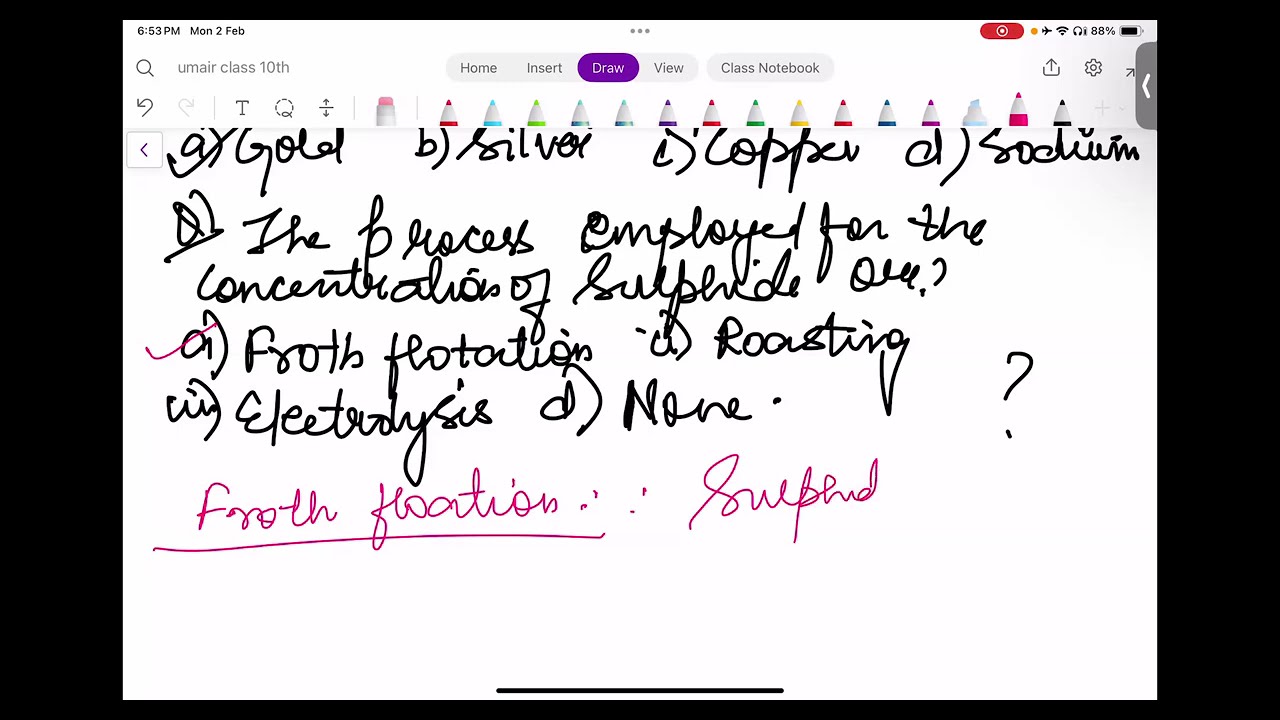 6:53 PM Mon 2 Feb 88%
umair class 10th Home Insert Draw View Class Notebook
a) Gold b) Silver c) Copper d) Sodium
Q. The process employed for the
concentration of Sulphide Ore?
i) Froth flotation ii) Roasting
iii) Electrolysis d) None. ?
Froth floation :- : Sulphid